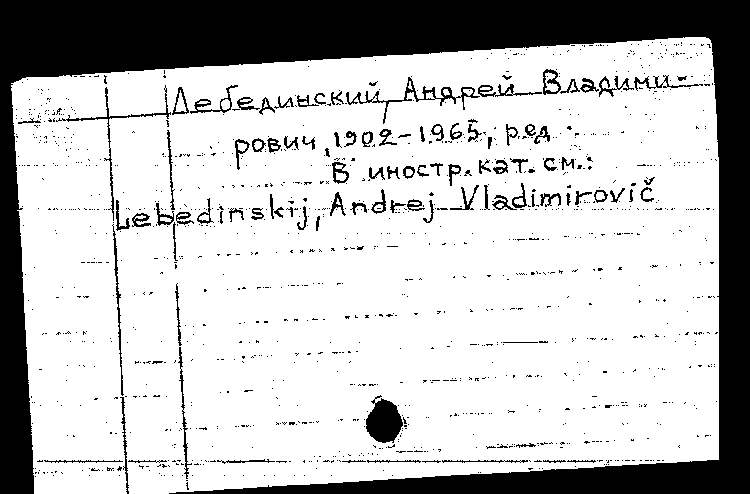 Лебединский, Андрей Владими-
рович, 1902-1965, ред.
В иностр. кат. см.:
Lebedinskij, Andrej Vladimirovič